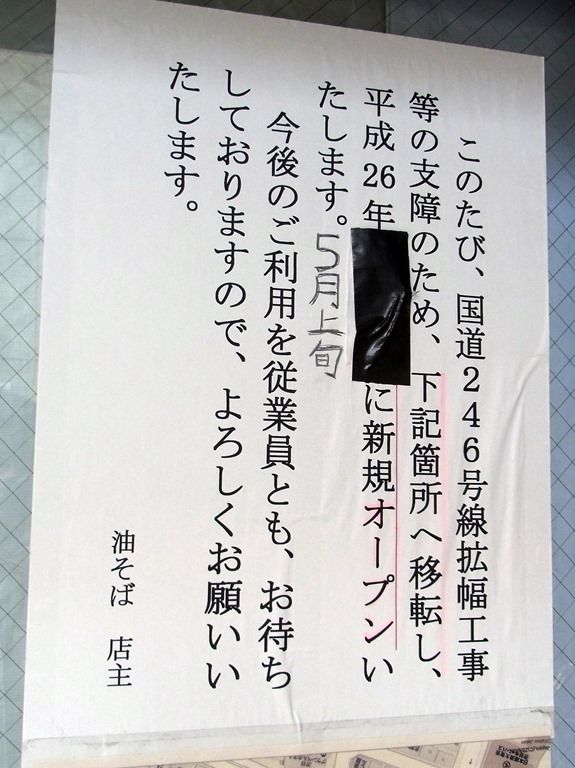 このたび、国道246号線拡幅工事
等の支障のため、下記箇所へ移転し、
平成26年
に新規オープンい
たします。
5月上旬
今後のご利用を従業員とも、お待ち
しておりますので、よろしくお願いい
たします。
油そば 店主